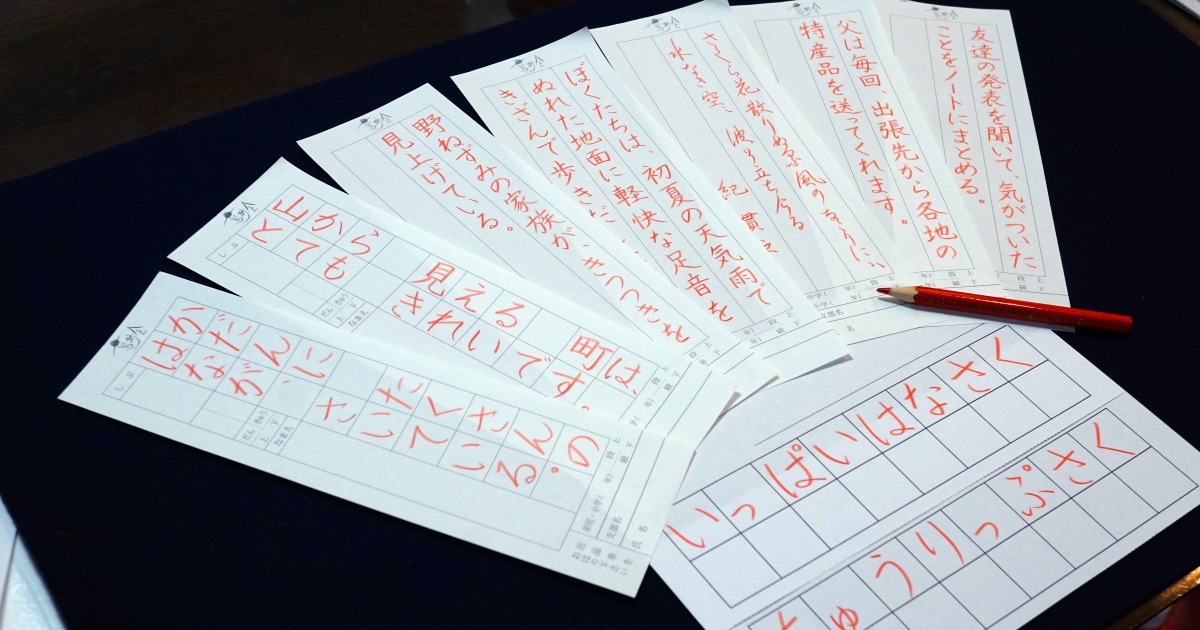 友達の発表を聞いて、気がついた
ことをノートにまとめる。
父は毎回、出張先から各地の
特産品を送ってくれます。
さくら花散りぬる風のなごりには
水なき空に波ぞ立ちける
紀貫之
ぼくたちは、初夏の天気雨で
ぬれた地面に軽快な足音を
きざんで歩きだ
野ねずみの家族が、きつつきを
見上げている。
山から見える町は、
とてもきれいです。
かだんにたくさんの
はなが、さいている。
いっぱいはなさく
ちゅうりっぷさく